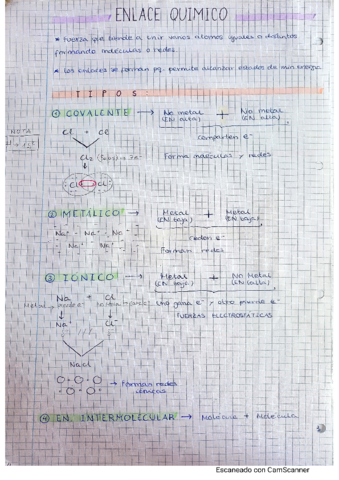 ENLACE QUÍMICO
* Fuerza que tiende a unir varios átomos iguales o distintos
formando moléculas o redes.
* Los enlaces se forman pq. permite alcanzar estados de min energía.
TIPOS
① COVALENTE → No metal + No metal
(EN alta) (EN alta)
comparten e⁻
NOTA
Cl + Cl
Cl₂
Forma moléculas y redes
Cl Cl
② METÁLICO → Metal + Metal
(EN baja) (EN baja)
Na⁺ Na⁺ Na⁺
Na⁺ Na⁺
ceden e⁻
Forman redes
③ IÓNICO → Metal + No Metal
(EN baja) (EN alta)
Na + Cl
Uno gana e⁻ y otro pierde e⁻
Na⁺ Cl⁻
FUERZAS ELECTROSTÁTICAS
NaCl
→ Forman redes
iónicas
④ EN. INTERMOLECULAR → Molécula + Molécula
Escaneado con CamScanner